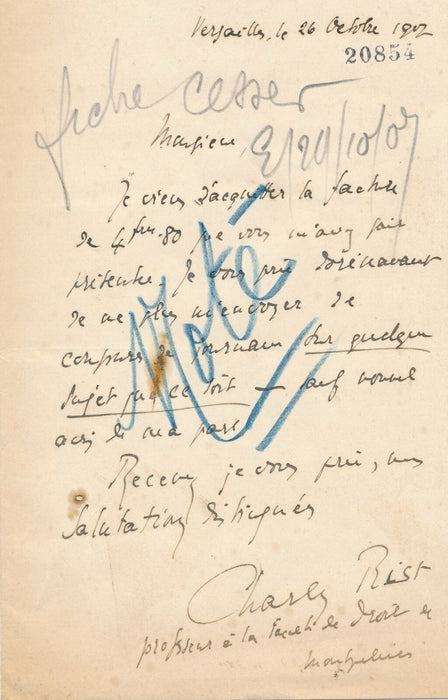 Versailles, le 26 Octobre 1907
20854
fiche cesser
E/29/10/07
Monsieur,
Je viens d'acquitter la facture
de 4frs 80 que vous m'avez fait
présenter. Je vous prie dorénavant
de ne plus m'envoyer de
coupures de journaux sur quelque
sujet que ce soit – sauf nouvel
avis de ma part
Noté
Recevez je vous prie, mes
salutations distinguées
Charles Rist
professeur à la faculté de droit de
Montpellier